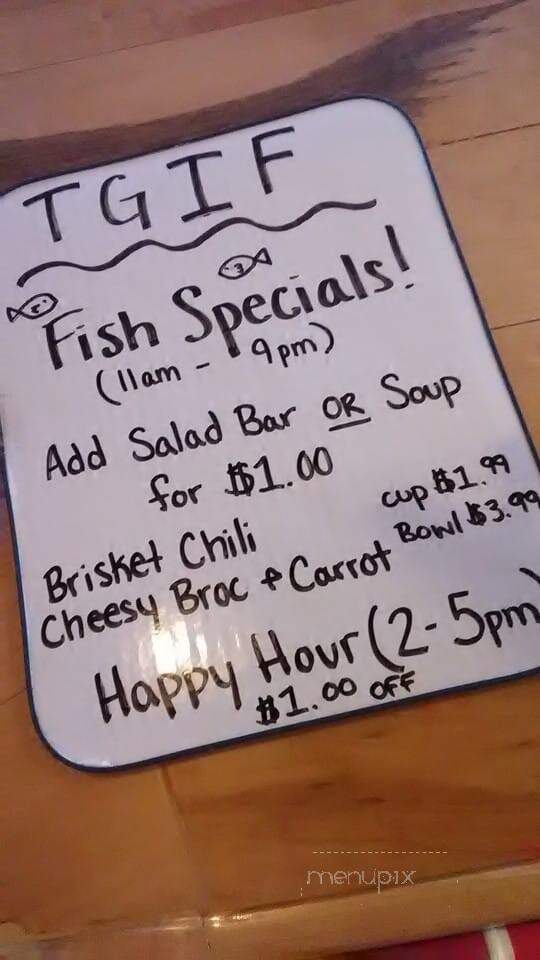 TGIF
Fish Specials!
(11am - 9pm)
Add Salad Bar OR Soup
for $1.00
Brisket Chili cup $1.99
Cheesy Broc + Carrot Bowl $3.99
Happy Hour (2-5pm)
$1.00 OFF
menupix